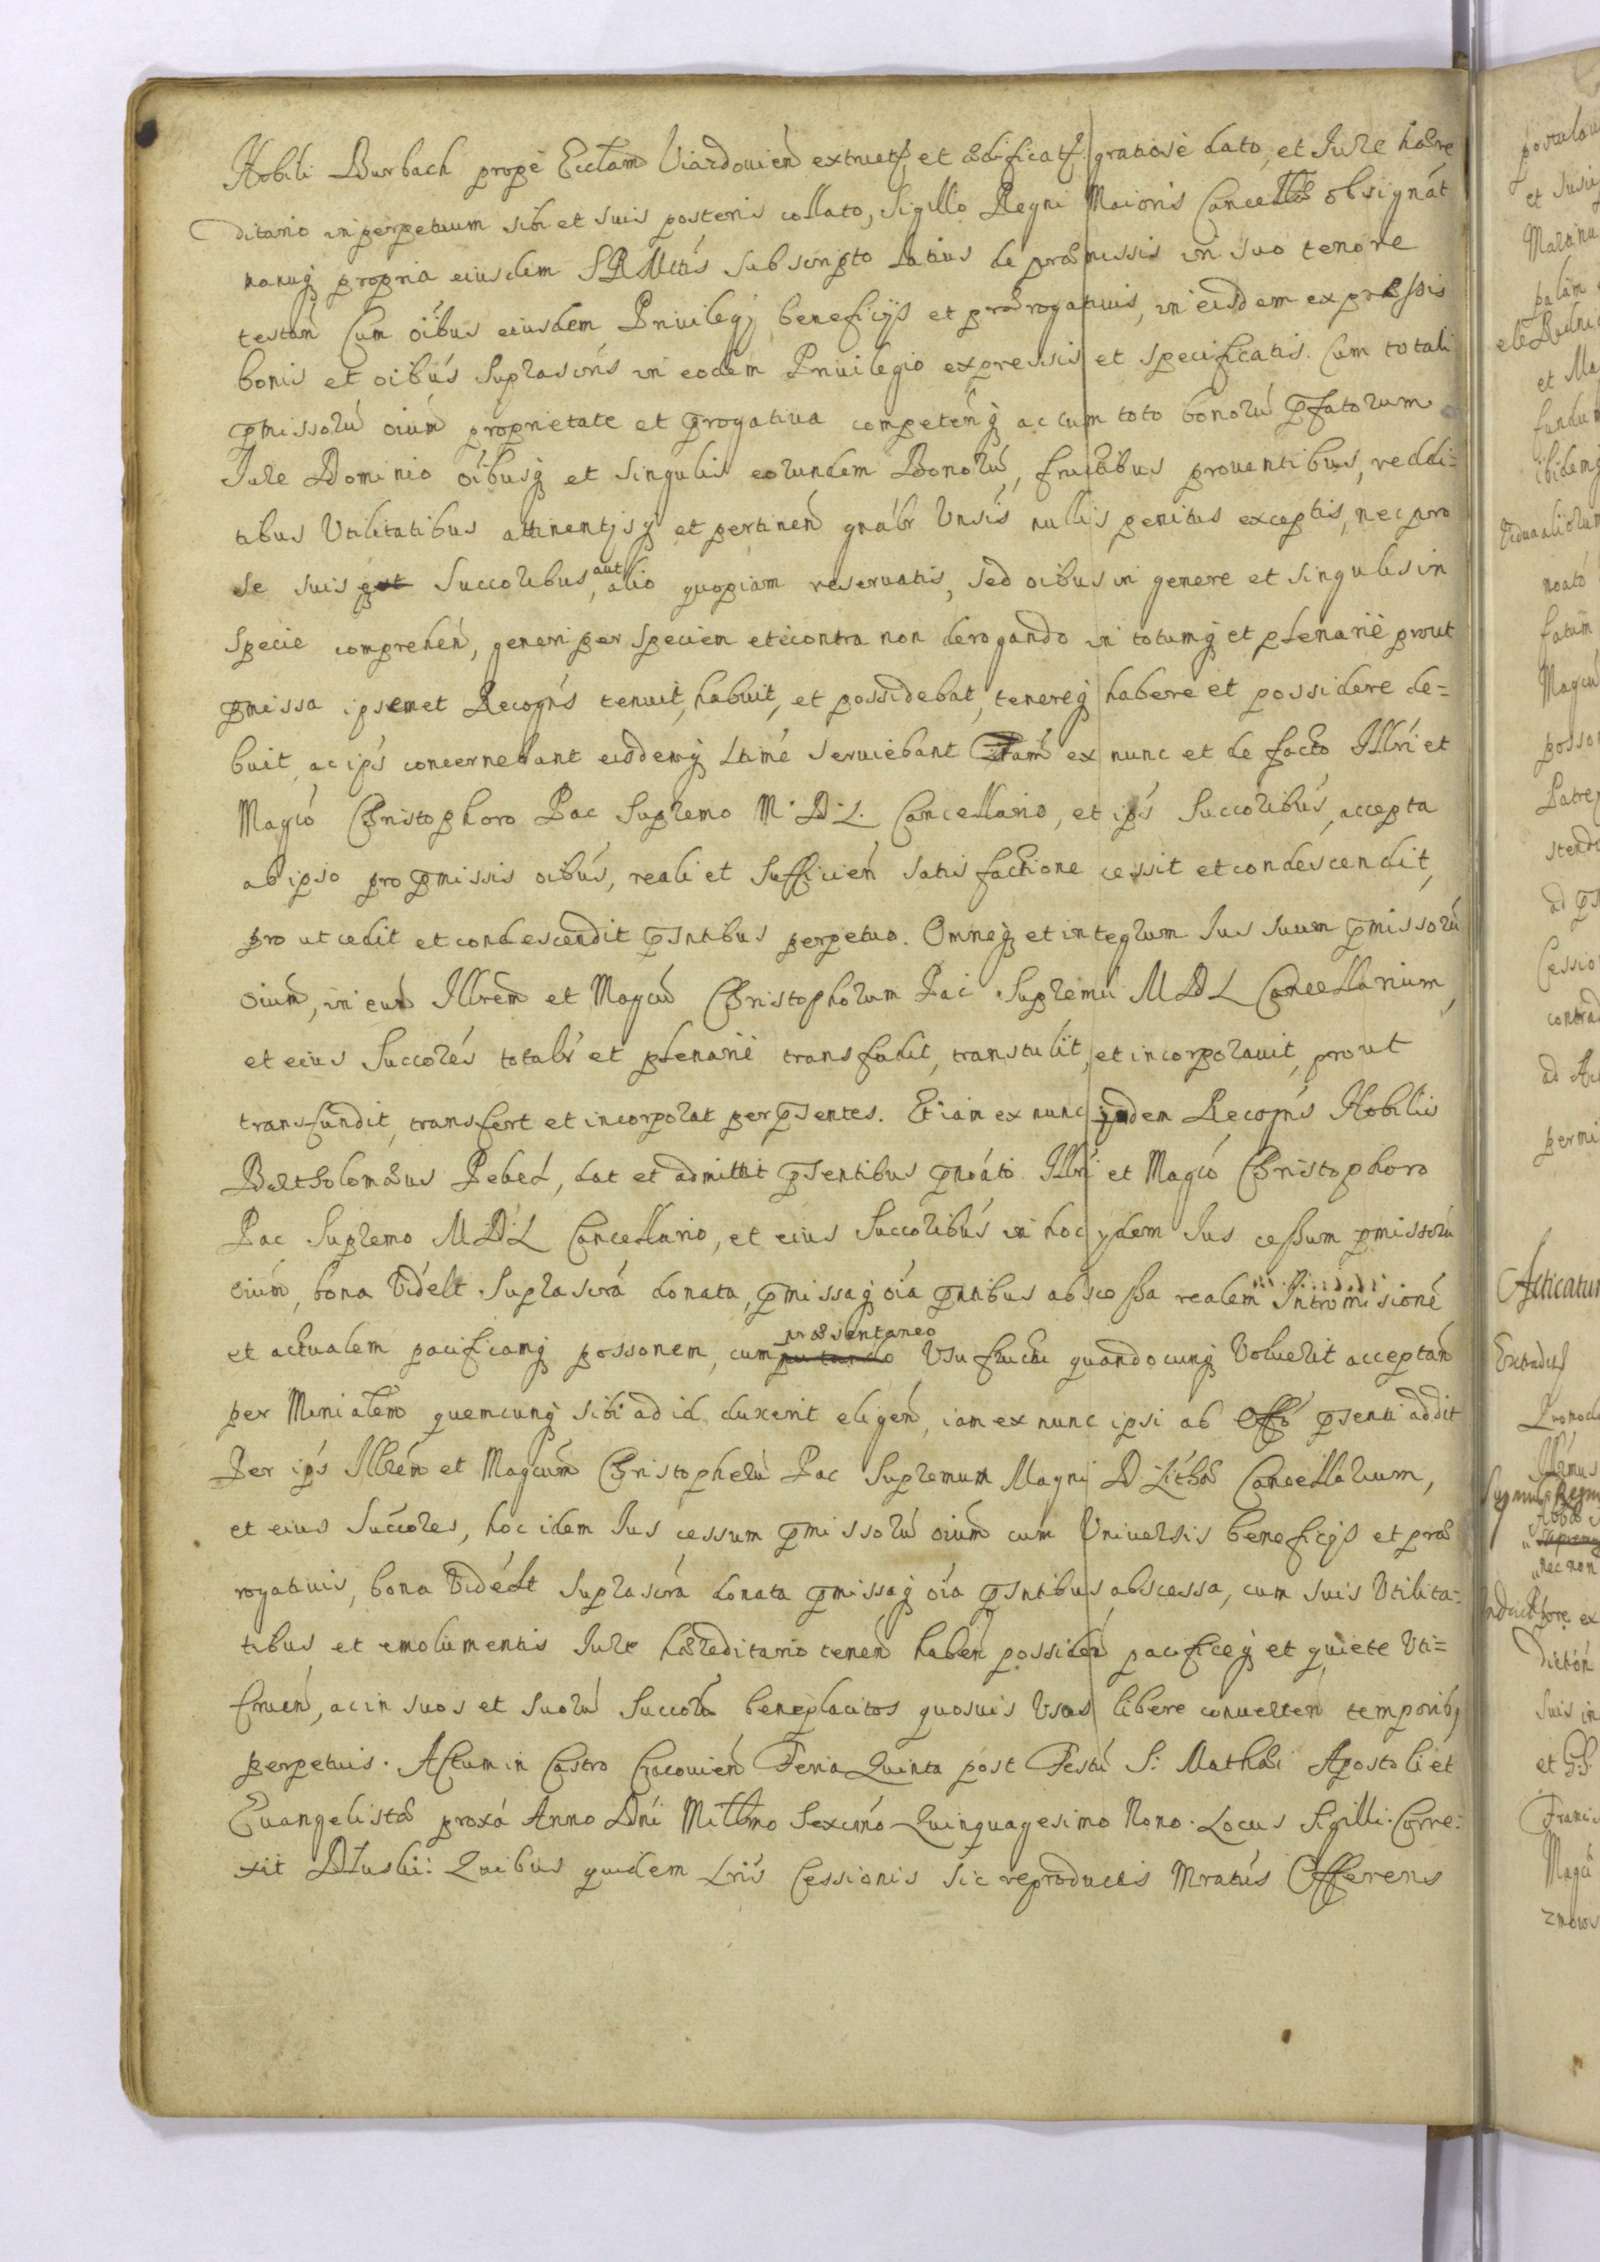 Nobili Burbach propè Ecctam Viazdouień extruct et ædificat gratiosè dato, et Jure hære
ditario in perpetuum sibi et suis posteris collato, Sigillo Regni Maioris Cancellæ obsignat
manuq propria eiusdem SRMttis Subscripto Latius de præmissis in suo tenore
testań Cum oibus eiusdem Priuilegÿ beneficijs et prærogatiuis, in eisdem expressis
bonis et oibus suprascris in eodem Priuilegio expressis et specificatis. Cum totali
pmissorū oium proprietate et progatiua competeńq ac cum toto bonorū pfatorum
Jure Dominio oibusq et singulis eorundem Bonorū, fructibus prouentibus, reddi=
tibus Vtilitatibus attinentjsq et pertineń gnabr Vnsis nullis penitus exceptis, nec pro
se suis Succoribus, aut alio quopiam reseruatis, sed oibus in genere et singulis in
specie compreheń, generi per speciem et è contra non derogando in totumq et plenariè prout
pmissa ipsemet Recogńs tenuit, habuit, et possidebat, tenereq habere et possidere de=
buit, ac ips concernebant eidemq Ltime seruiebant ex nunc et de facto Illri et
Magco Christophoro Pac Supremo M.D.L. Cancellario, et ips Succoribus, accepta
ab ipso pro pmissis oibus, reali et sufficień satisfactione cessit et condescendit,
prout cedit et condescendit psntibus perpetuo. Omneq et integrum Jus suum pmissorū
oium, in eund Illrem et Magcum Christophorum Pac Supremū MDL Cancellarium,
et eius Succores totabr et plenariè transfudit, transtulit, et incorporauit, prout
transfundit, transfert et incorporat per psentes. Etiam ex nunc idem Recogńs Nobilis
Bartholomæus Pebel, dat et admittit psentibus pnoato Illri et Magco Christophoro
Pac Supremo MDL Cancellario, et eius Succoribus in hoc ydem Jus cessum pmissorū
oium, bona Vidélt suprascra donata, pmissaq oia psntibus abscessa realem Intromisionē
et actualem pacificamq possonem, cum præsentaneo Vsufructu quandocunq Voluerit acceptań
per Minialem quemcunq sibi ad id duxerit eligeń, iam ex nunc ipsi ab Offo psenti addit
Per ips Illrem et Magcum Christophorū Pac Supremum Magni D Lithæ Cancellarium,
et eius Succores, hoc idem Jus cessum pmissorū oium cum Vniuersis beneficijs et præ
rogatiuis, bona Vidélt suprascra donata pmissaq oia psntibus abscessa, cum suis Vtilita=
tibus et emolumentis Jure hæreditario teneń habeń possideń pacificeq et quiete Vti=
frueń, ac in suos et suorū Succorū beneplacitos quosuis Vsus libere conuerteń temporibq
perpetuis. Actum in Castro Cracouień Feria Quinta post Festū S: Mathæi Apostoli et
Euangelistæ proxa Anno Dni Millmo Sexcmo Quinquagesimo Nono. Locus Sigilli. Corre:
xit Dłuski: Quibus quidem Lris Cessionis sic reproductis Mratus Offerens